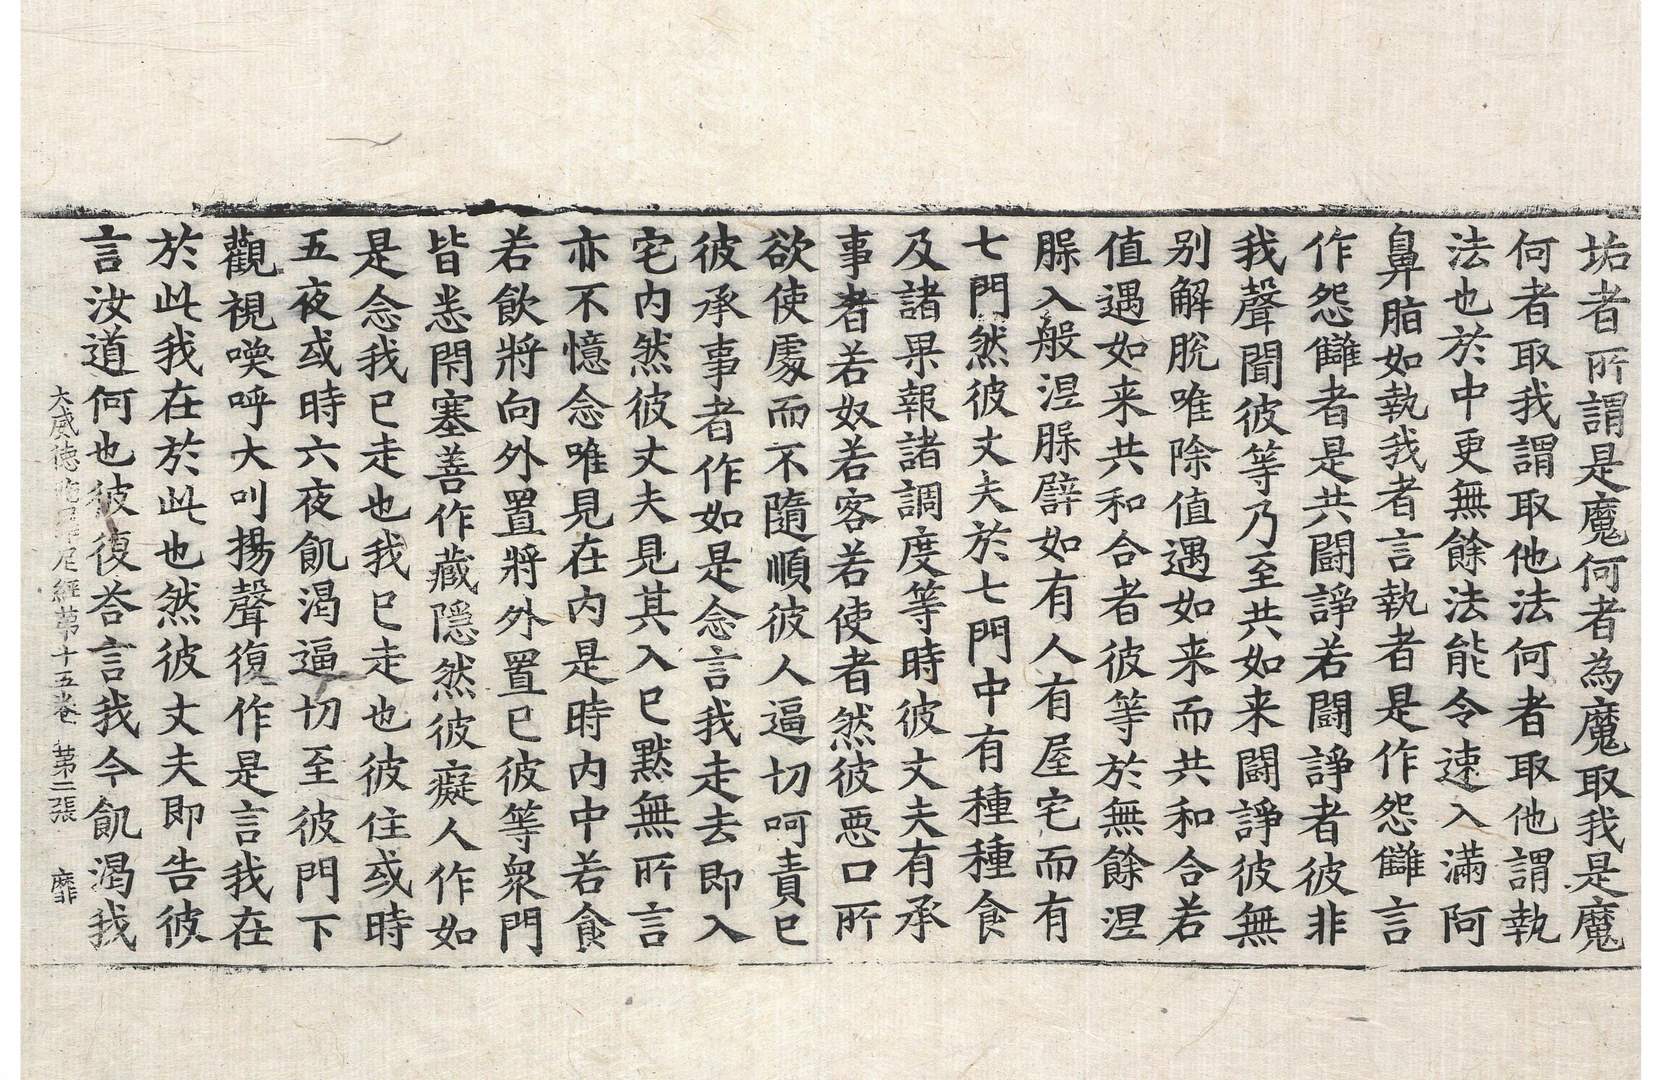 垢者所謂是魔何者為魔取我是魔
何者取我謂取他法何者取他謂執
法也於中更無餘法能令速入滿阿
鼻脂如執我者言執者是作怨讎言
作怨讎者是共鬪諍若鬪諍者彼非
我聲聞彼等乃至共如来鬪諍彼無
别解脫唯除值遇如来而共和合若
值遇如来共和合者彼等於無餘涅
腂入般涅腂譬如有人有屋宅而有
七門然彼丈夫於七門中有種種食
及諸果報諸調度等時彼丈夫有承
事者若奴若客若使者然彼惡口所
欲使處而不隨順彼人逼切呵責已
彼承事者作如是念言我走去即入
宅内然彼丈夫見其入已默無所言
亦不憶念唯見在内是時内中若食
若飲將向外置將外置已彼等衆門
皆悉閇塞善作藏隱然彼癡人作如
是念我已走也我已走也彼住或時
五夜或時六夜飢渴逼切至彼門下
觀視喚呼大叫揚聲復作是言我在
於此我在於此也然彼丈夫即告彼
言汝道何也彼復荅言我今飢渴我
大威德陁羅尼經苐十五卷 苐二張 靡